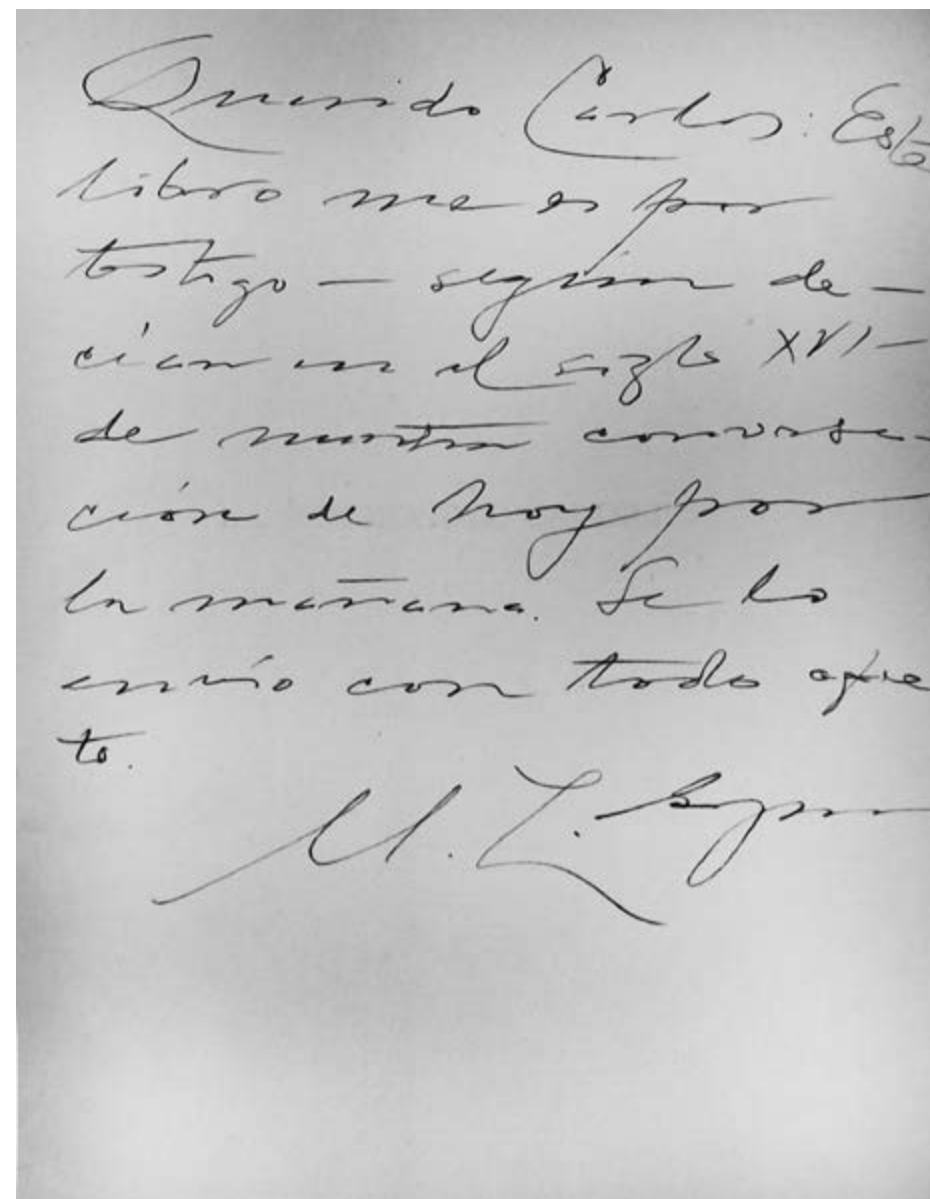 Querido Carlos: Este
libro me es por
testigo — según de-
cían en el siglo XVI—
de nuestra conversa-
ción de hoy por
la mañana. Se lo
envío con todo afec
to.
M. L.